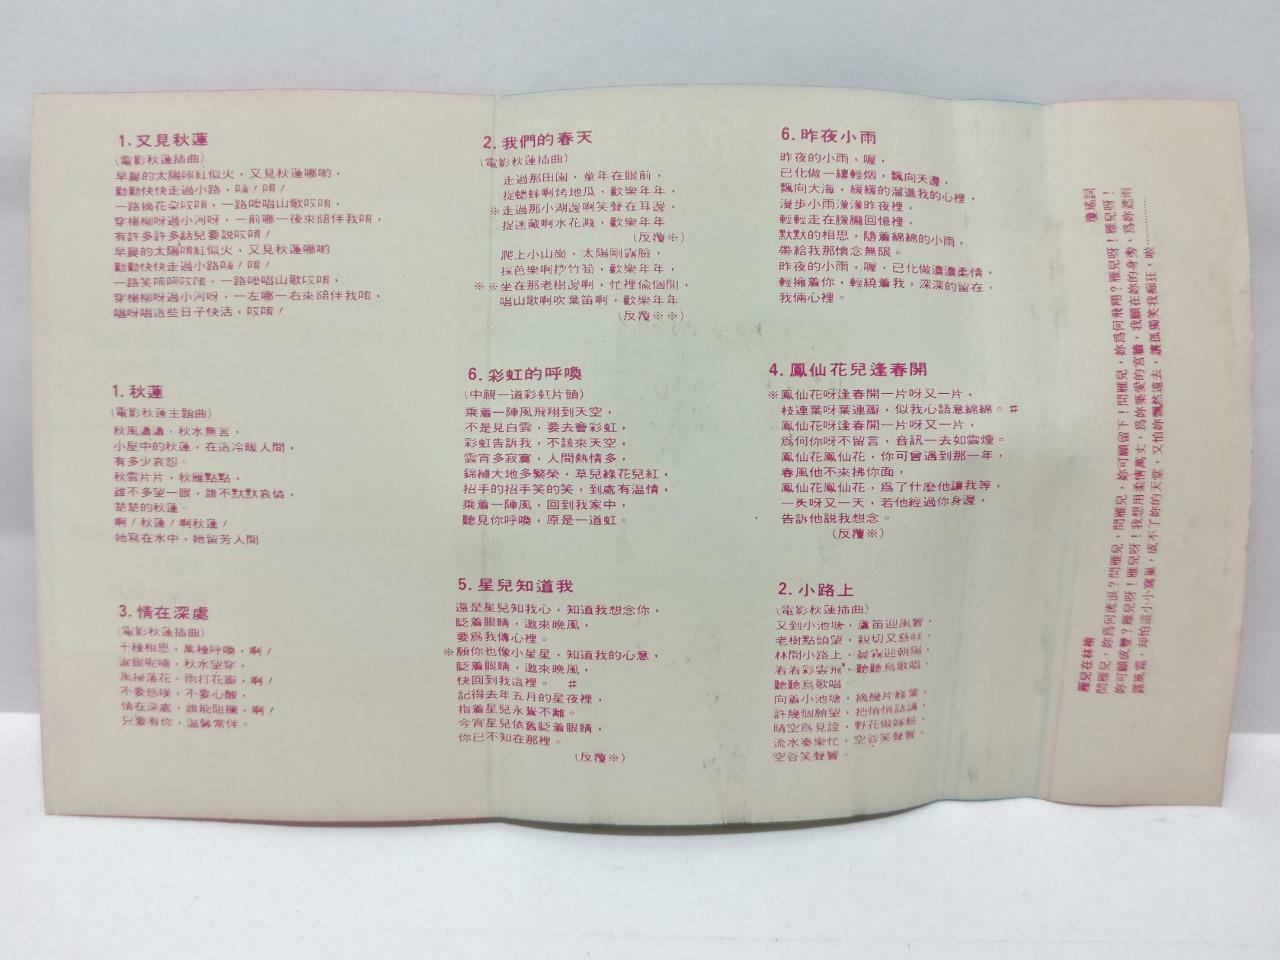 1. 又見秋蓮
(電影秋蓮插曲)
早晨的太陽唷紅似火，又見秋蓮哪喲，
勤勤快快走過小路，嗨！唷！
一路摘花朵哎唷，一路嚜唱山歌哎唷，
穿楊柳呀過小河呀，一前哪一後來陪伴我唷，
有許多許多話兒要說哎唷！
早晨的太陽唷紅似火，又見秋蓮哪喲
勤勤快快走過小路嗨！唷！
一路笑嗬嗬哎唷，一路嚜唱山歌哎唷，
穿楊柳呀過小河呀，一左哪一右來陪伴我唷，
唱呀唱這些日子快活，哎唷！
1. 秋蓮
(電影秋蓮主題曲)
秋風瀟瀟，秋水無言，
小屋中的秋蓮，在這冷暖人間，
有多少哀怨。
秋雲片片，秋雁點點，
誰不多望一眼，誰不默默哀憐，
楚楚的秋蓮。
啊！秋蓮！啊秋蓮！
她寫在水中，她留芳人間
3. 情在深處
(電影秋蓮插曲)
千種相思，萬種呼喚，啊！
淚眼呢喃，秋水望穿，
風掃落花，雨打花瓣，啊！
不要感嘆，不要心酸，
情在深處，誰能阻攔，啊！
只要有你，溫馨常伴。
2. 我們的春天
(電影秋蓮插曲)
走過那田園，童年在眼前，
捉蟋蟀啊烤地瓜，歡樂年年，
※走過那小湖邊啊笑聲在耳邊，
捉迷藏啊水花濺，歡樂年年
(反覆※)
爬上小山崗，太陽剛露臉，
採芭樂啊挖竹筍，歡樂年年，
※※坐在那老樹邊啊，忙裡偷個閒，
唱山歌啊吹葉笛啊，歡樂年年
(反覆※※)
6. 彩虹的呼喚
(中視一道彩虹片頭)
乘着一陣風飛翔到天空，
不是見白雲，要去會彩虹，
彩虹告訴我，不該來天空，
雲宵多寂寞，人間熱情多，
錦繡大地多繁榮，草兒綠花兒紅，
招手的招手笑的笑，到處有溫情，
乘着一陣風，回到我家中，
聽見你呼喚，原是一道虹。
5. 星兒知道我
還是星兒知我心，知道我想念你，
眨着眼睛，邀來晚風，
要爲我傳心裡。
※願你也像小星星，知道我的心意，
眨着眼睛，邀來晚風，
快回到我這裡。 #
記得去年五月的星夜裡，
指着星兒永鴛不離。
今宵星兒依舊眨着眼睛，
你已不知在那裡。
(反覆※)
6. 昨夜小雨
昨夜的小雨，喔，
已化做一縷輕烟，飄向天邊，
飄向大海，緩緩的溜進我的心裡，
漫步小雨濛濛昨夜裡，
輕輕走在朦朧回憶裡，
默默的相思，隨着綿綿的小雨，
帶給我那懷念無限。
昨夜的小雨，喔，已化做濃濃柔情，
輕擁着你，輕繞着我，深深的留在，
我倆心裡。
4. 鳳仙花兒逢春開
※鳳仙花呀逢春開一片呀又一片，
枝連葉呀葉連瓣，似我心語意綿綿。#
鳳仙花呀逢春開一片呀又一片，
爲何你呀不留言，音訊一去如雲煙。
鳳仙花鳳仙花，你可曾遇到那一年，
春風他不來拂你面，
鳳仙花鳳仙花，爲了什麼他讓我等，
一天呀又一天，若他經過你身邊，
告訴他說我想念。
(反覆※)
2. 小路上
(電影秋蓮插曲)
又到小池塘，蘆笛迎風響，
老樹點頭望，親切又慈祥，
林間小路上，晨霧迎朝陽，
看看彩雲飛，聽聽鳥歌唱，
聽聽鳥歌唱。
向着小池塘，摘幾片綠葉，
許幾個願望，把悄悄話講，
晴空爲見證，野花做嫁粧，
流水奏樂忙，空谷笑聲響，
空谷笑聲響。
雁兒在林梢
瓊瑤詞
問雁兒，妳爲何流浪？問雁兒，妳爲何飛翔？雁兒呀！
問雁兒，妳可願留下！問雁兒，妳可願成雙？雁兒呀！雁兒呀！
我想用柔情萬丈，爲妳築愛的宮牆，我願在妳的身旁，爲妳遮雨
露風霜，却怕這小小窩巢，成不了妳的天堂，又怕妳飄然遠去，讓孤獨笑我痴狂，啦……